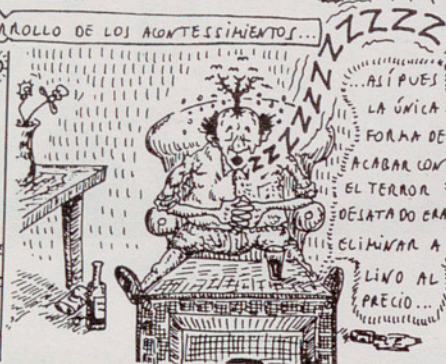 RROLLO DE LOS ACONTESSIMIENTOS...
ZZZZZZZZZZZZZ
...ASÍ PUES
LA ÚNICA
FORMA DE
ACABAR CON
EL TERROR
DESATADO ERA
ELIMINAR A
LINO AL
PRECIO...